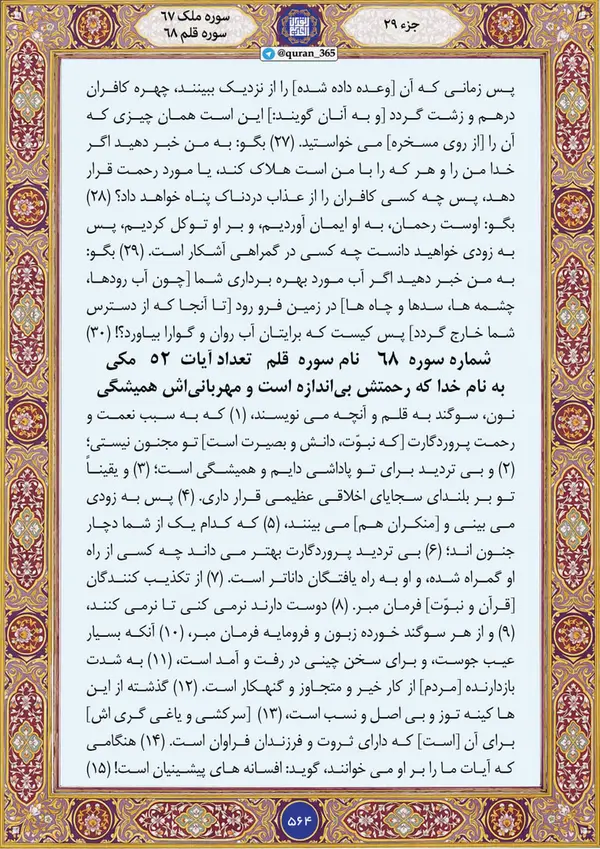 جزء ۲۹
سوره ملک ۶۷
سوره قلم ۶۸
@quran_365
پس زمانی که آن [وعده داده شده] را از نزدیک ببینند، چهره کافران
درهم و زشت گردد [و به آنان گویند:] این است همان چیزی که
آن را [از روی مسخره] می خواستید. (۲۷) بگو: به من خبر دهید اگر
خدا من را و هر که را با من است هلاک کند، یا مورد رحمت قرار
دهد، پس چه کسی کافران را از عذاب دردناک پناه خواهد داد؟ (۲۸)
بگو: اوست رحمان، به او ایمان آوردیم، و بر او توکل کردیم، پس
به زودی خواهید دانست چه کسی در گمراهی آشکار است. (۲۹) بگو:
به من خبر دهید اگر آب مورد بهره برداری شما [چون آب رودها،
چشمه ها، سدها و چاه ها] در زمین فرو رود [تا آنجا که از دسترس
شما خارج گردد] پس کیست که برایتان آب روان و گوارا بیاورد؟! (۳۰)
شماره سوره ۶۸ نام سوره قلم تعداد آیات ۵۲ مکی
به نام خدا که رحمتش بی‌اندازه است و مهربانی‌اش همیشگی
نون، سوگند به قلم و آنچه می نویسند، (۱) که به سبب نعمت و
رحمت پروردگارت [که نبوّت، دانش و بصیرت است] تو مجنون نیستی؛
(۲) و بی تردید برای تو پاداشی دایم و همیشگی است؛ (۳) و یقیناً
تو بر بلندای سجایای اخلاقی عظیمی قرار داری. (۴) پس به زودی
می بینی و [منکران هم] می بینند، (۵) که کدام یک از شما دچار
جنون اند؛ (۶) بی تردید پروردگارت بهتر می داند چه کسی از راه
او گمراه شده، و او به راه یافتگان داناتر است. (۷) از تکذیب کنندگان
[قرآن و نبوّت] فرمان مبر. (۸) دوست دارند نرمی کنی تا نرمی کنند،
(۹) و از هر سوگند خورده زبون و فرومایه فرمان مبر، (۱۰) آنکه بسیار
عیب جوست، و برای سخن چینی در رفت و آمد است، (۱۱) به شدت
بازدارنده [مردم] از کار خیر و متجاوز و گنهکار است. (۱۲) گذشته از این
ها کینه توز و بی اصل و نسب است، (۱۳) [سرکشی و یاغی گری اش]
برای آن [است] که دارای ثروت و فرزندان فراوان است. (۱۴) هنگامی
که آیات ما را بر او می خوانند، گوید: افسانه های پیشینیان است! (۱۵)
۵۶۴